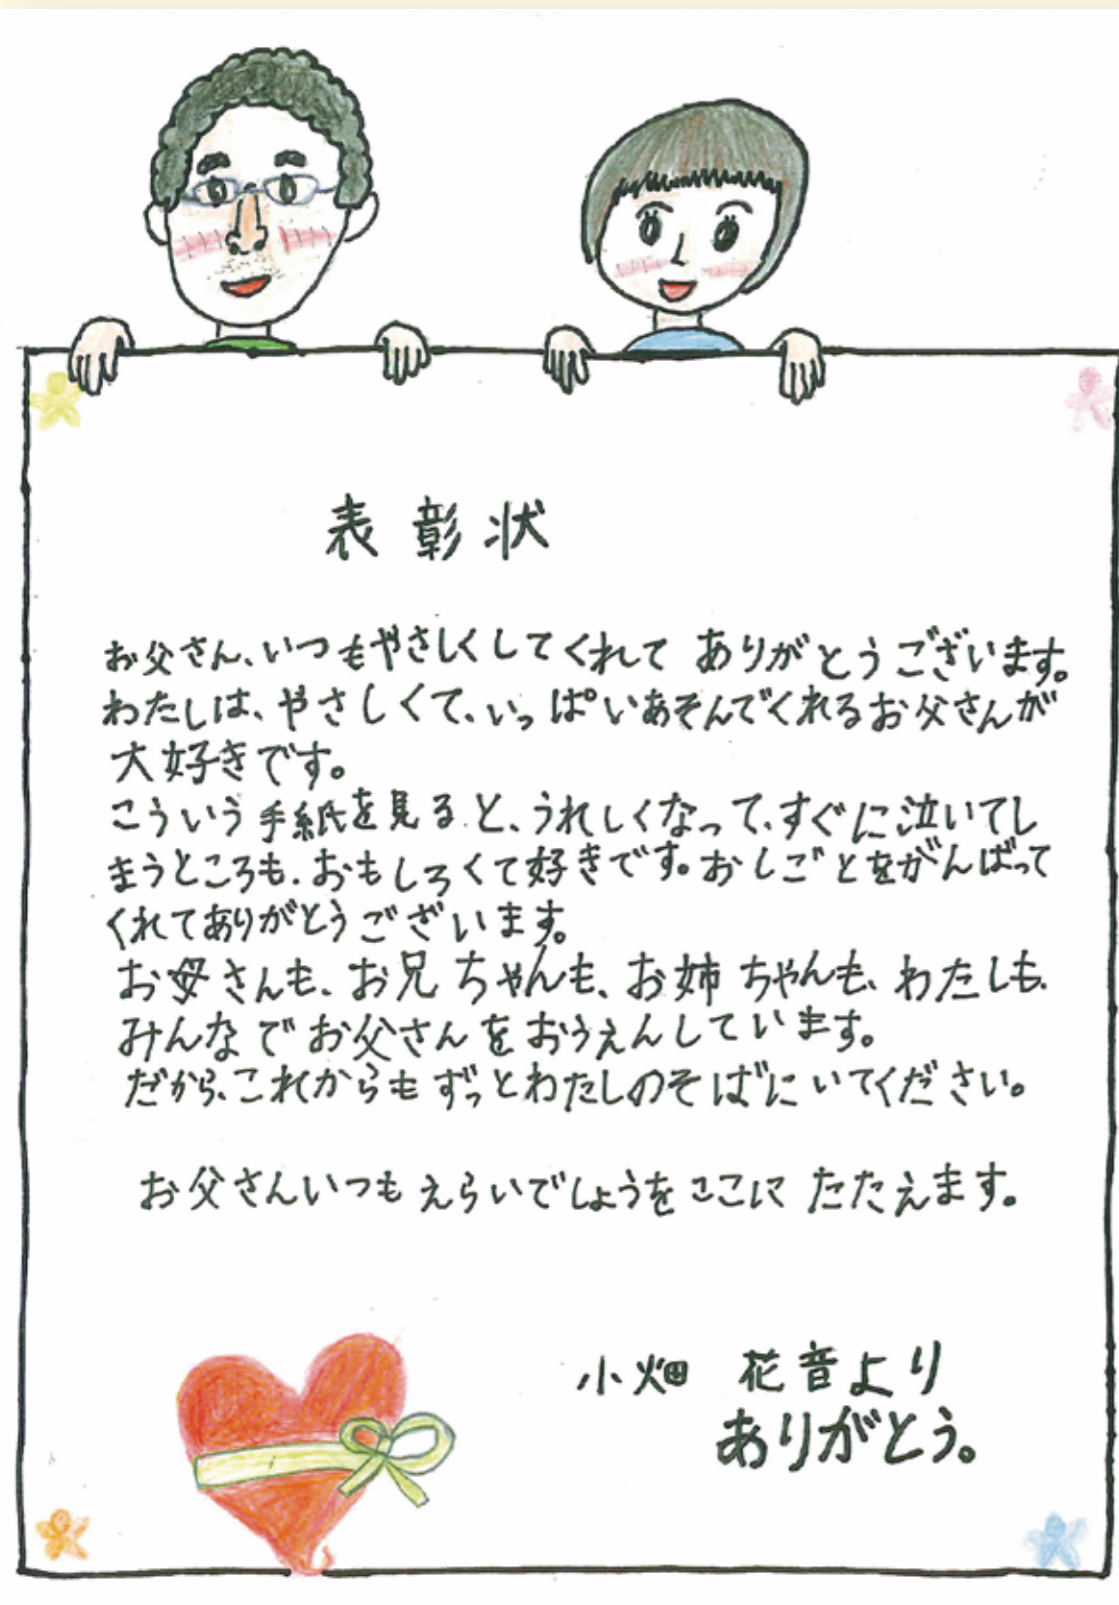 表彰状
お父さん、いつもやさしくしてくれて ありがとうございます。
わたしは、やさしくて、いっぱいあそんでくれるお父さんが
大好きです。
こういう手紙を見ると、うれしくなって、すぐに泣いてし
まうところも、おもしろくて好きです。おしごとをがんばって
くれてありがとうございます。
お母さんも、お兄ちゃんも、お姉ちゃんも、わたしも、
みんなでお父さんをおうえんしています。
だから、これからもずっとわたしのそばにいてください。
お父さんいつもえらいでしょうをここに たたえます。
小畑 花音より
ありがとう。